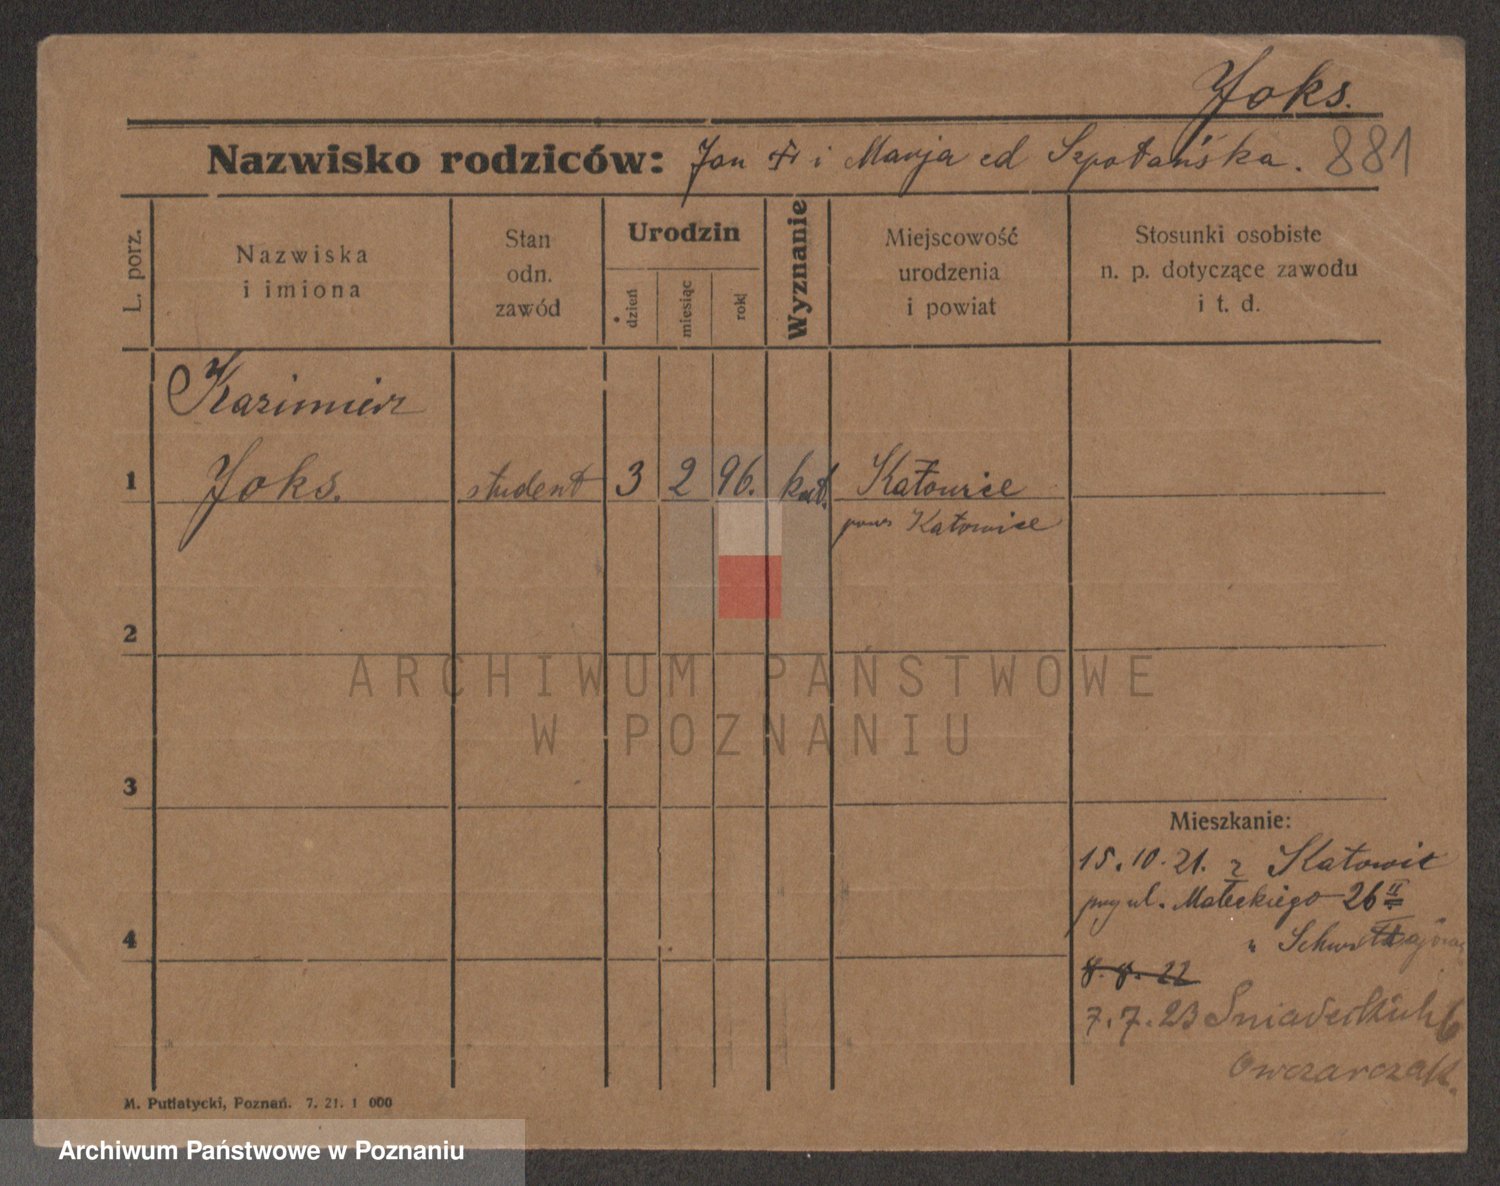 Joks.
Nazwisko rodziców: Jan i Marja cd Szpotańska. 881
L. porz.
Nazwiska
i imiona
Stan
odn.
zawód
Urodzin
dzień
miesiąc
rok
Wyznanie
Miejscowość
urodzenia
i powiat
Stosunki osobiste
n. p. dotyczące zawodu
i t. d.
Kazimierz
1 Joks. student 3 2 96. kat. Katowice
pow Katowice
2
3
4
Mieszkanie:
15.10.21. z Katowic
przy ul. Małeckiego 26 II
"
8. 8. 22
7. 7. 23 Śniadeckich 6
Owczarczak.
M. Putiatycki, Poznań. 7. 21. 1 000
ARCHIWUM PAŃSTWOWE
W POZNANIU
Archiwum Państwowe w Poznaniu